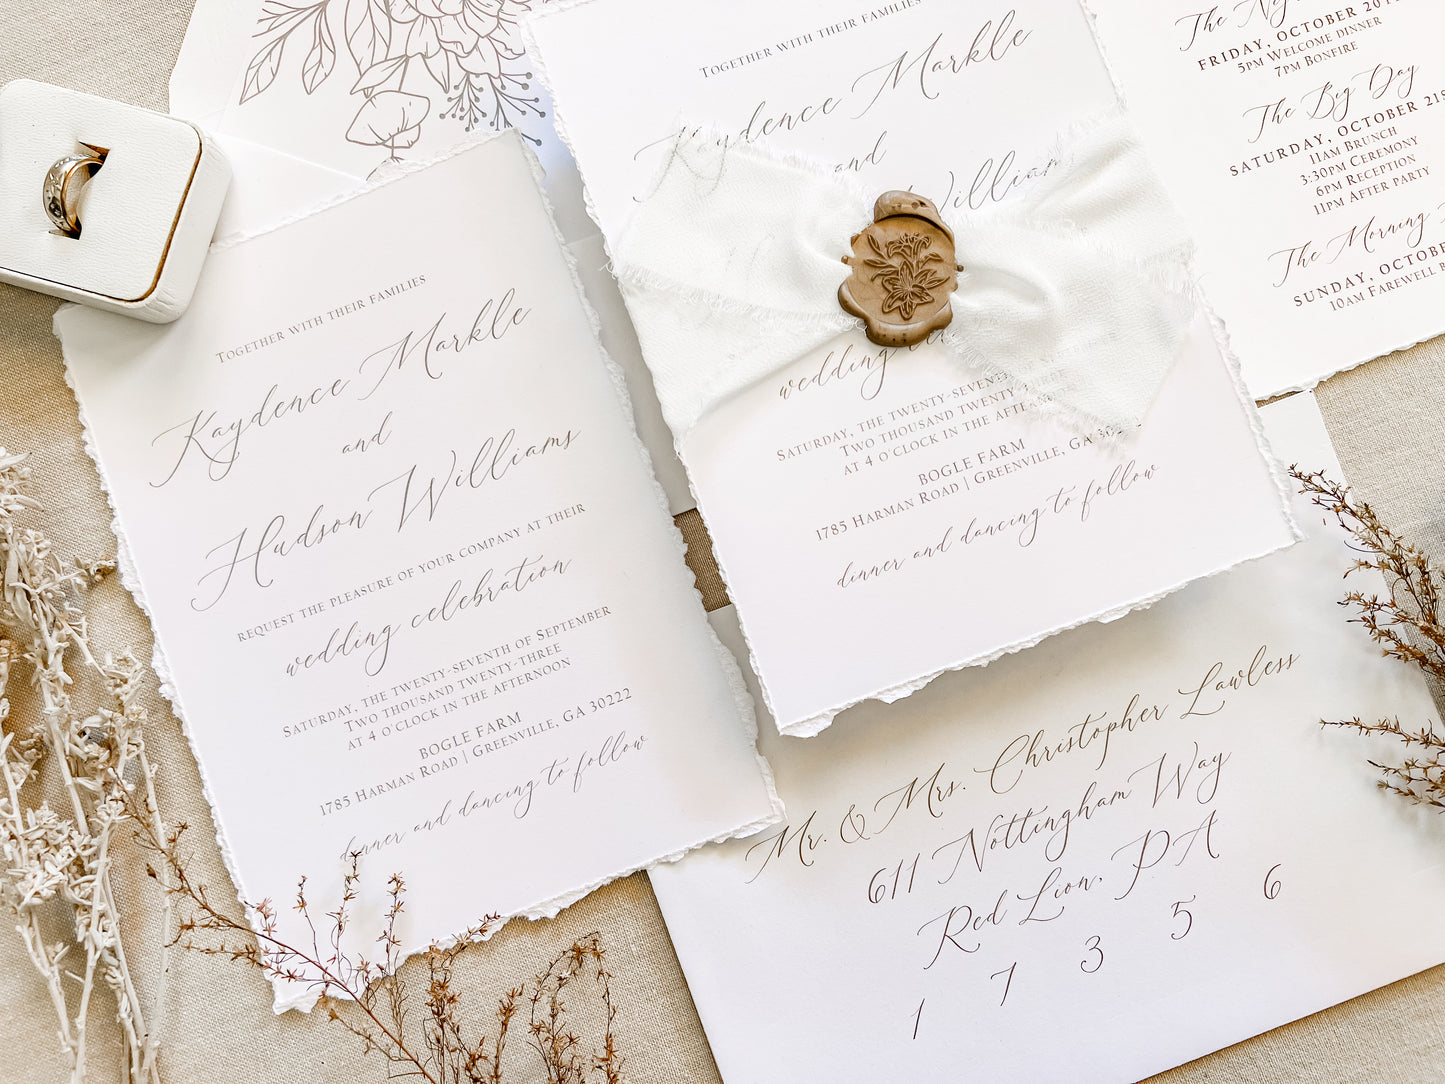 Together with their families
Kaydence Markle
and
Hudson Williams
request the pleasure of your company at their
wedding celebration
Saturday, the twenty-seventh of September
Two thousand twenty-three
at 4 o'clock in the afternoon
BOGLE FARM
1785 Harman Road | Greenville, GA 30222
dinner and dancing to follow
Together with their families
Kaydence Markle
and
William
wedding
Saturday, the twenty-seventh
Two thousand twenty-three
at 4 o'clock in the afternoon
BOGLE FARM
1785 Harman Road | Greenville, GA
dinner and dancing to follow
The
FRIDAY, OCTOBER
5pm Welcome dinner
7pm Bonfire
The Big Day
SATURDAY, OCTOBER
11am Brunch
3:30pm Ceremony
6pm Reception
11pm After party
The Morning
SUNDAY,
10am Farewell
Mr. & Mrs. Christopher Lawless
611 Nottingham Way
Red Lion, PA
1 7 3 5 6